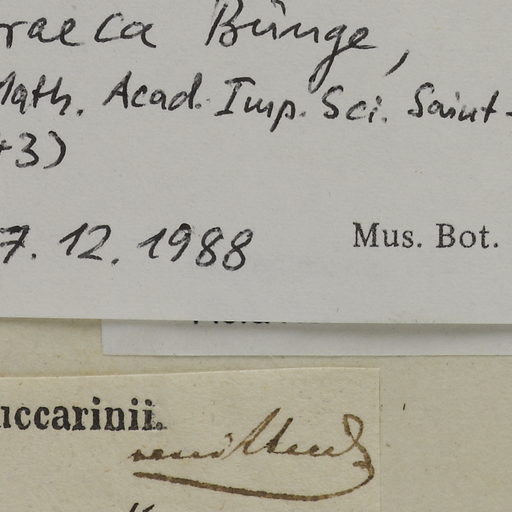 raeca Bunge,
Math. Acad. Imp. Sci. Saint-
+3)
7. 12. 1988 Mus. Bot.
uccarinii.